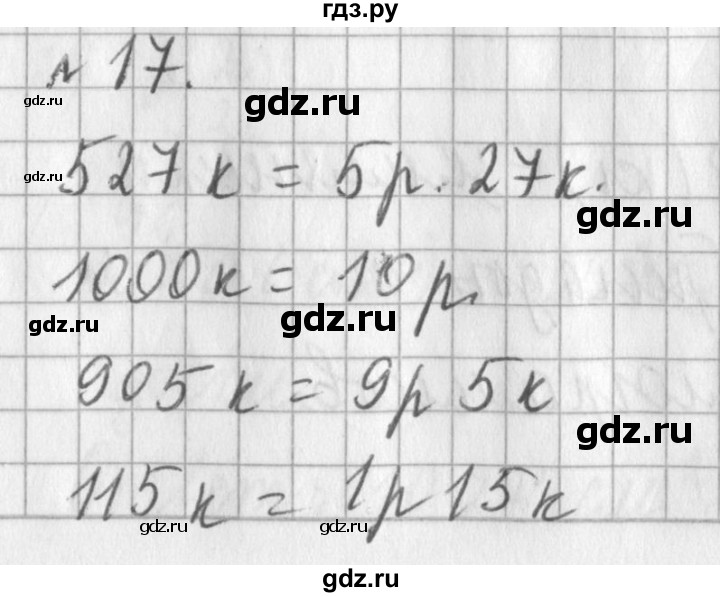 гдз.ру
№ 17.
gdz.ru
gdz.ru
527 к = 5 р. 27 к.
gdz.ru
gdz.ru
1000 к = 10 р.
gdz.ru
gdz.ru
905 к = 9 р 5 к
gdz.ru
115 к = 1 р 15 к
gdz.ru
gdz.ru
gdz.ru